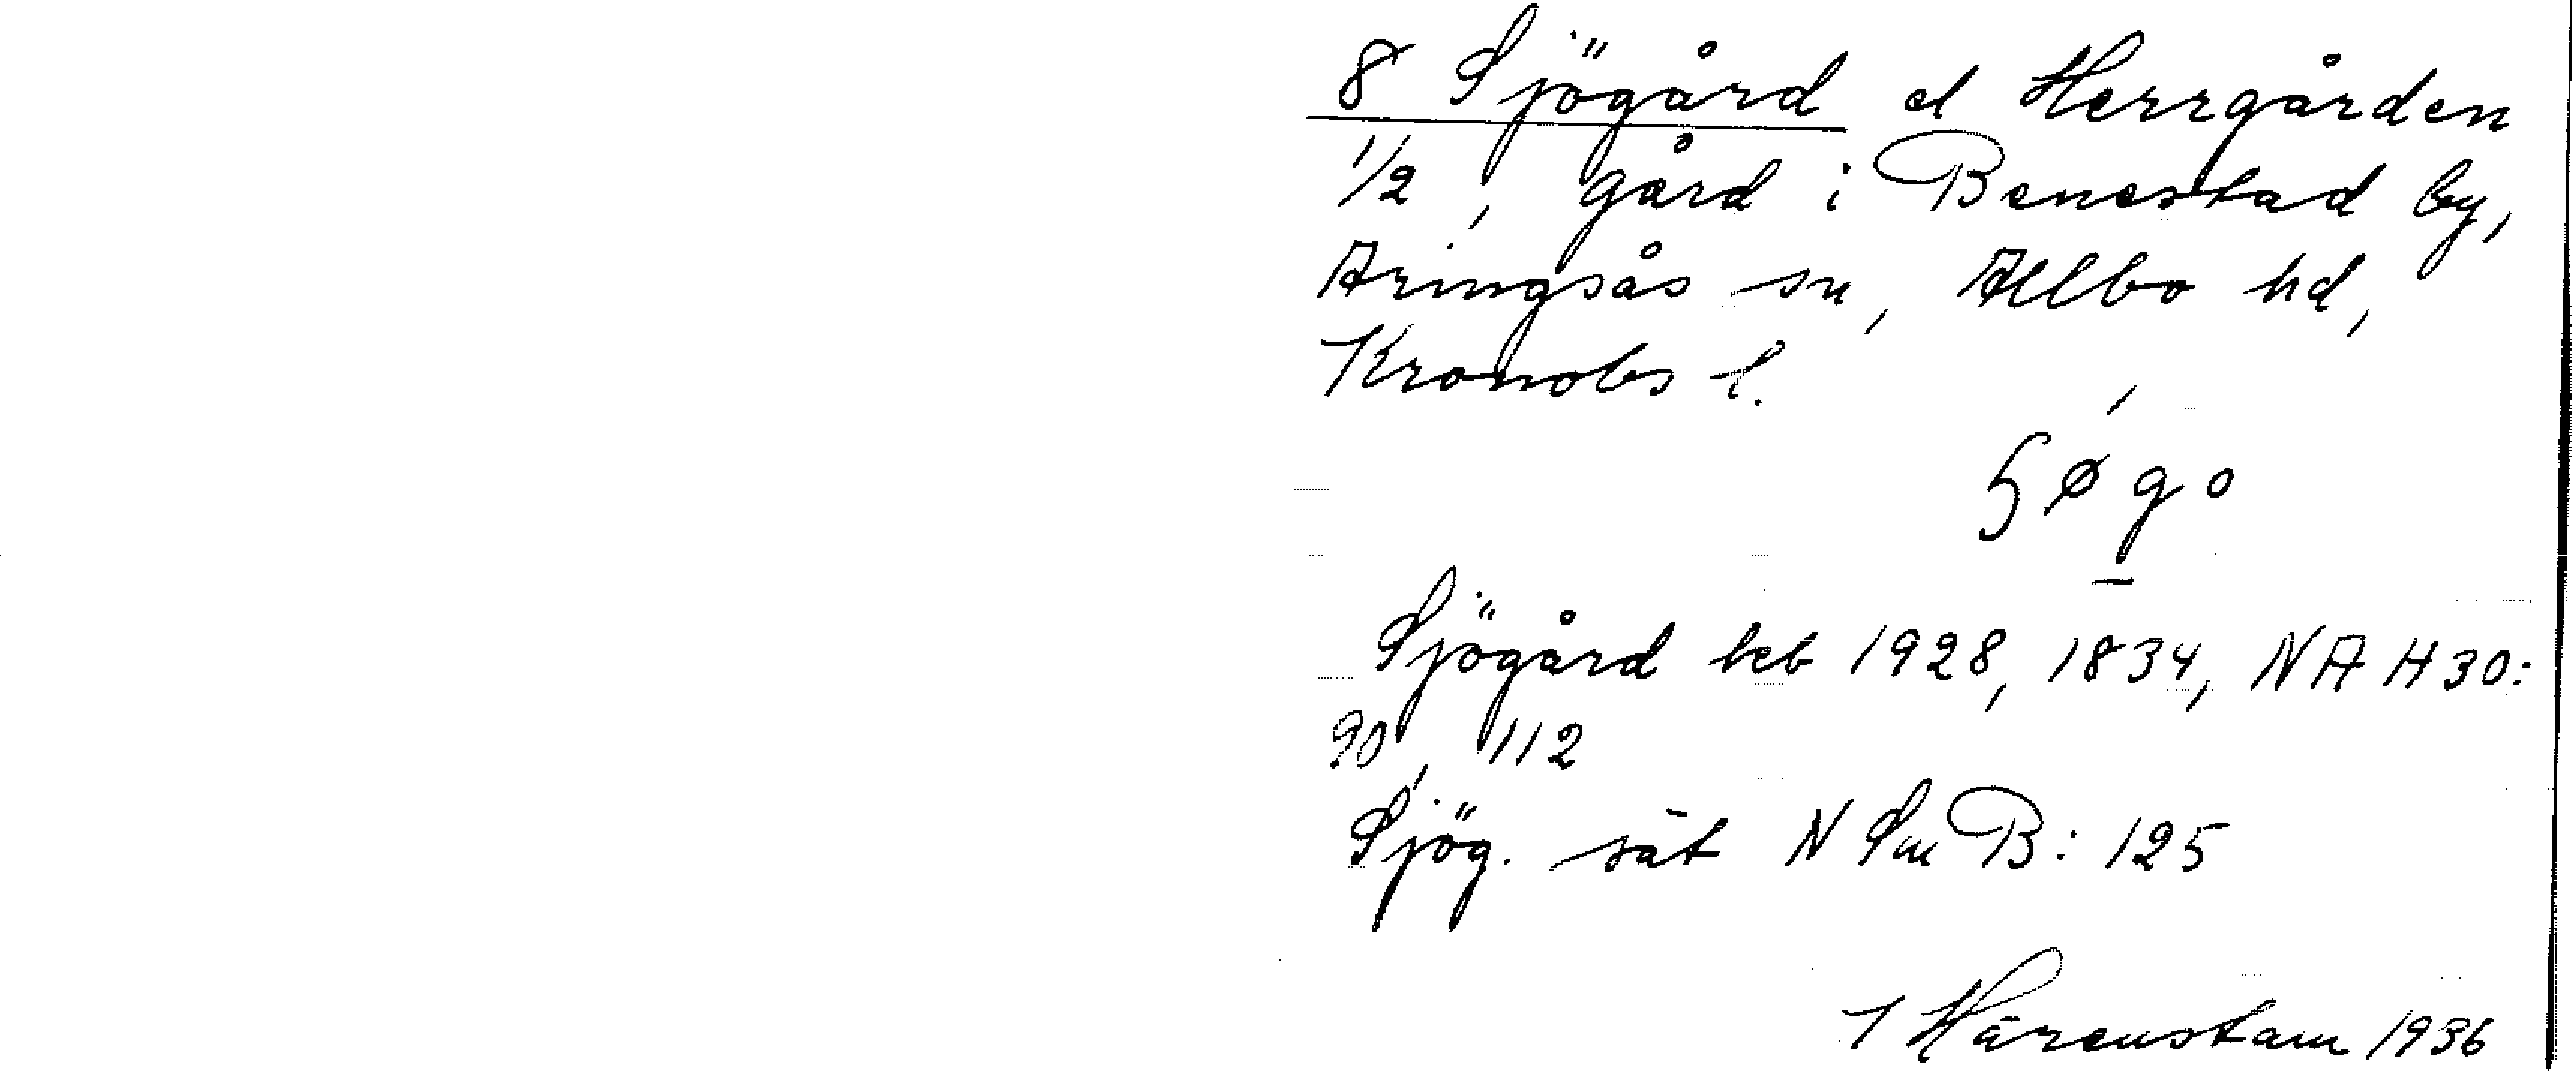 8 Sjögård el Herrgården
1/2, gård i Benestad by,
Aringsås sn, Allbo hd,
Kronobs l.
ʃøgo
Sjögård beb 1928, 1834, NA H30:
90, 112
Sjög. sät N Sm B: 125
Härenstam 1936